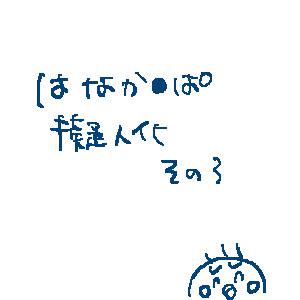 はなか●ぱ
擬人化
その3